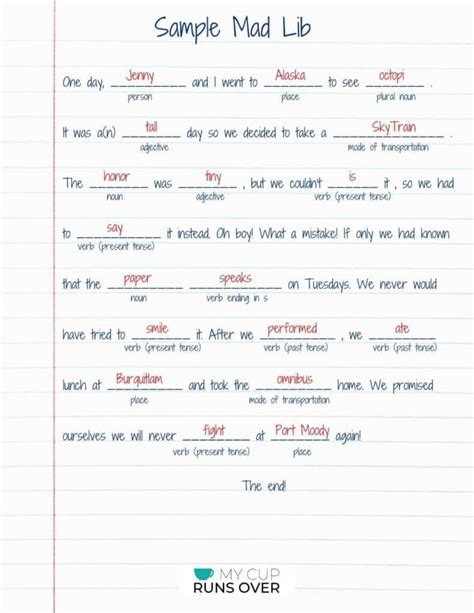 Sample Mad Lib
One day, Jenny and I went to Alaska to see octopi
person place plural noun
It was a(n) tall day so we decided to take a SkyTrain
adjective mode of transportation
The honor was tiny, but we couldn't is it, so we had
noun adjective verb (present tense)
to say it instead. Oh boy! What a mistake! If only we had known
verb (present tense)
that the paper speaks on Tuesdays. We never would
noun verb ending in s
have tried to smile it. After we performed, we ate
verb (present tense) verb (past tense) verb (past tense)
lunch at Burquitlam and took the omnibus home. We promised
place mode of transportation
ourselves we will never fight at Port Moody again!
verb (present tense) place
The end!
MY CUP
RUNS OVER